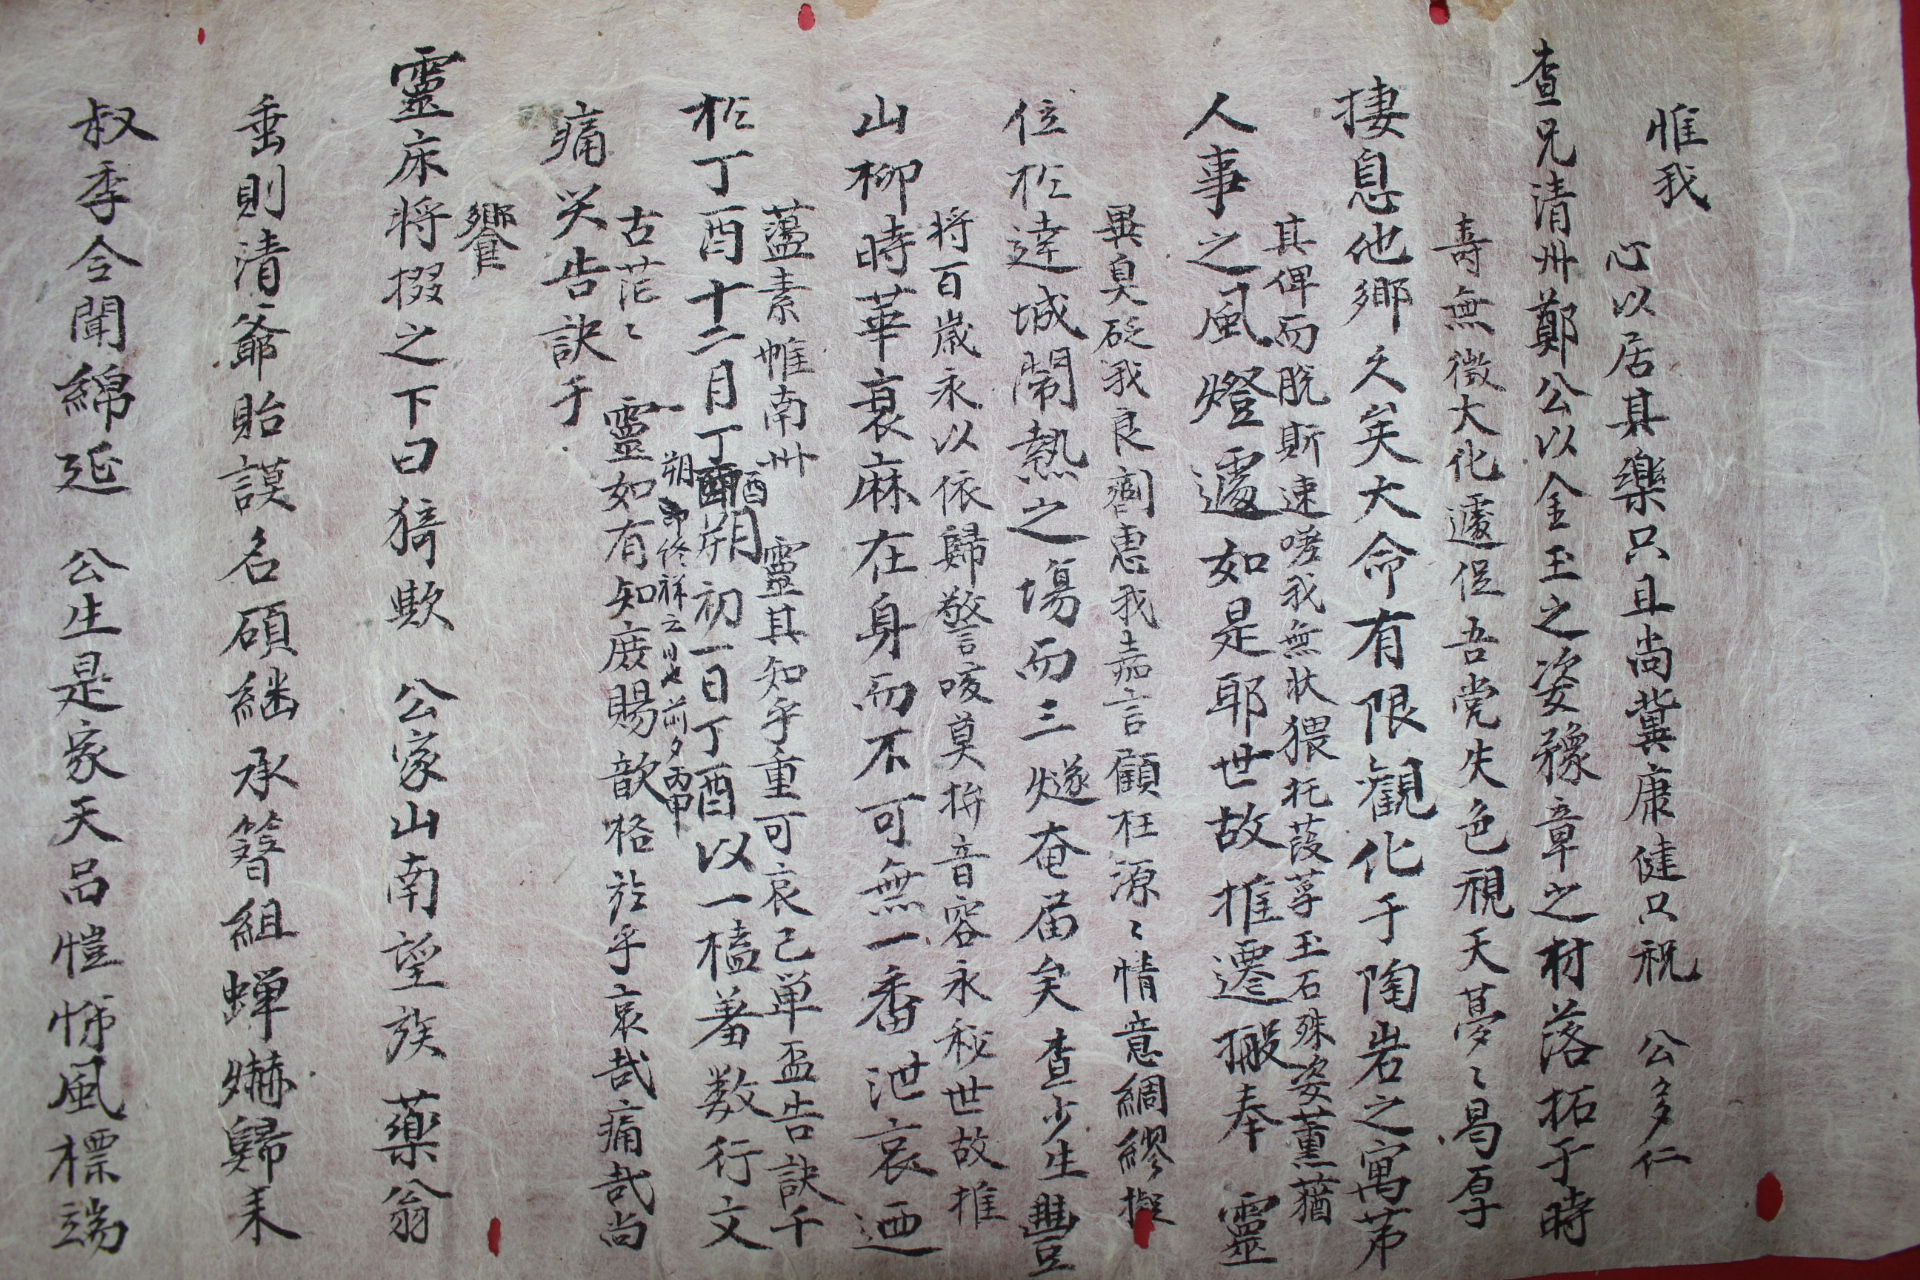 惟我
心以居其樂只且尚冀康健只祝 公多仁
查兄清州鄭公以金玉之姿豫章之材落拓于時
壽無徵大化遽促吾党失色視天夢〻曷厚
捿息他鄉久矣大命有限觀化于陶岩之寓第
其俾而脫斯速嗟我無狀猥托葭莩玉石殊姿薰蕕
人事之風燈遽如是耶世故推遷搬奉 靈
異臭砭我良劑惠我嘉言顧枉源〻情意綢繆擬
位於達城鬧熱之塲而三燧奄届矣查少生豐
将百歲永以依歸警咳莫拚音容永秘世故推
山柳時華衰麻在身而不可無一番泄哀迺
蘯素帷南州 靈其知乎重可哀已単盃告訣千
於丁酉十二月丁酉朔初一日丁酉以一榼羞數行文
酉
朔 即終祥之日也前夕丙申
古茫〻 靈如有知庻賜歆格於乎哀哉痛哉尚
痛哭告訣于
饗
靈床将掇之下曰猗歟 公家山南望族藥翁
垂則清爺貽謨名碩継承簪組蟬嚇歸来
叔季令聞綿延 公生是家天品愷悌風標端